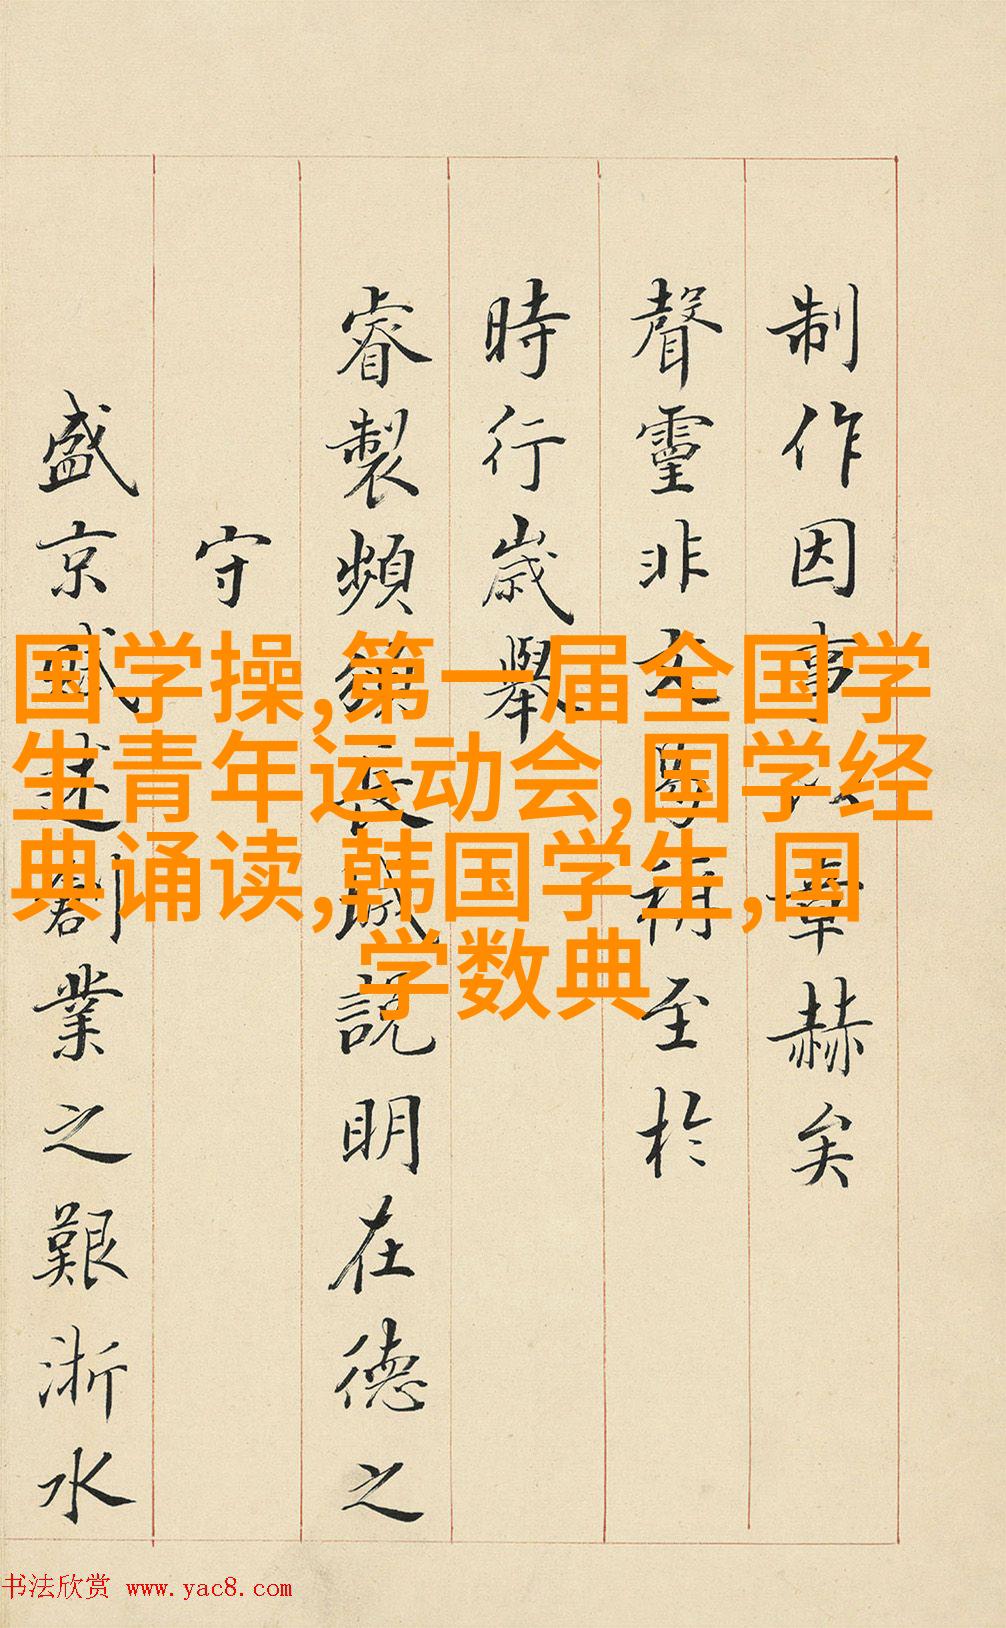 制作因事以章赫矣
聲靈非文昜稱至於
時行歲舉
睿製頻頒長城說明在德之
守
盛京賦述創業之艱浙水
国学操,第一届全国学
生青年运动会,国学经
典诵读,韩国学生,国
学数典
书法欣赏 www.yac8.com